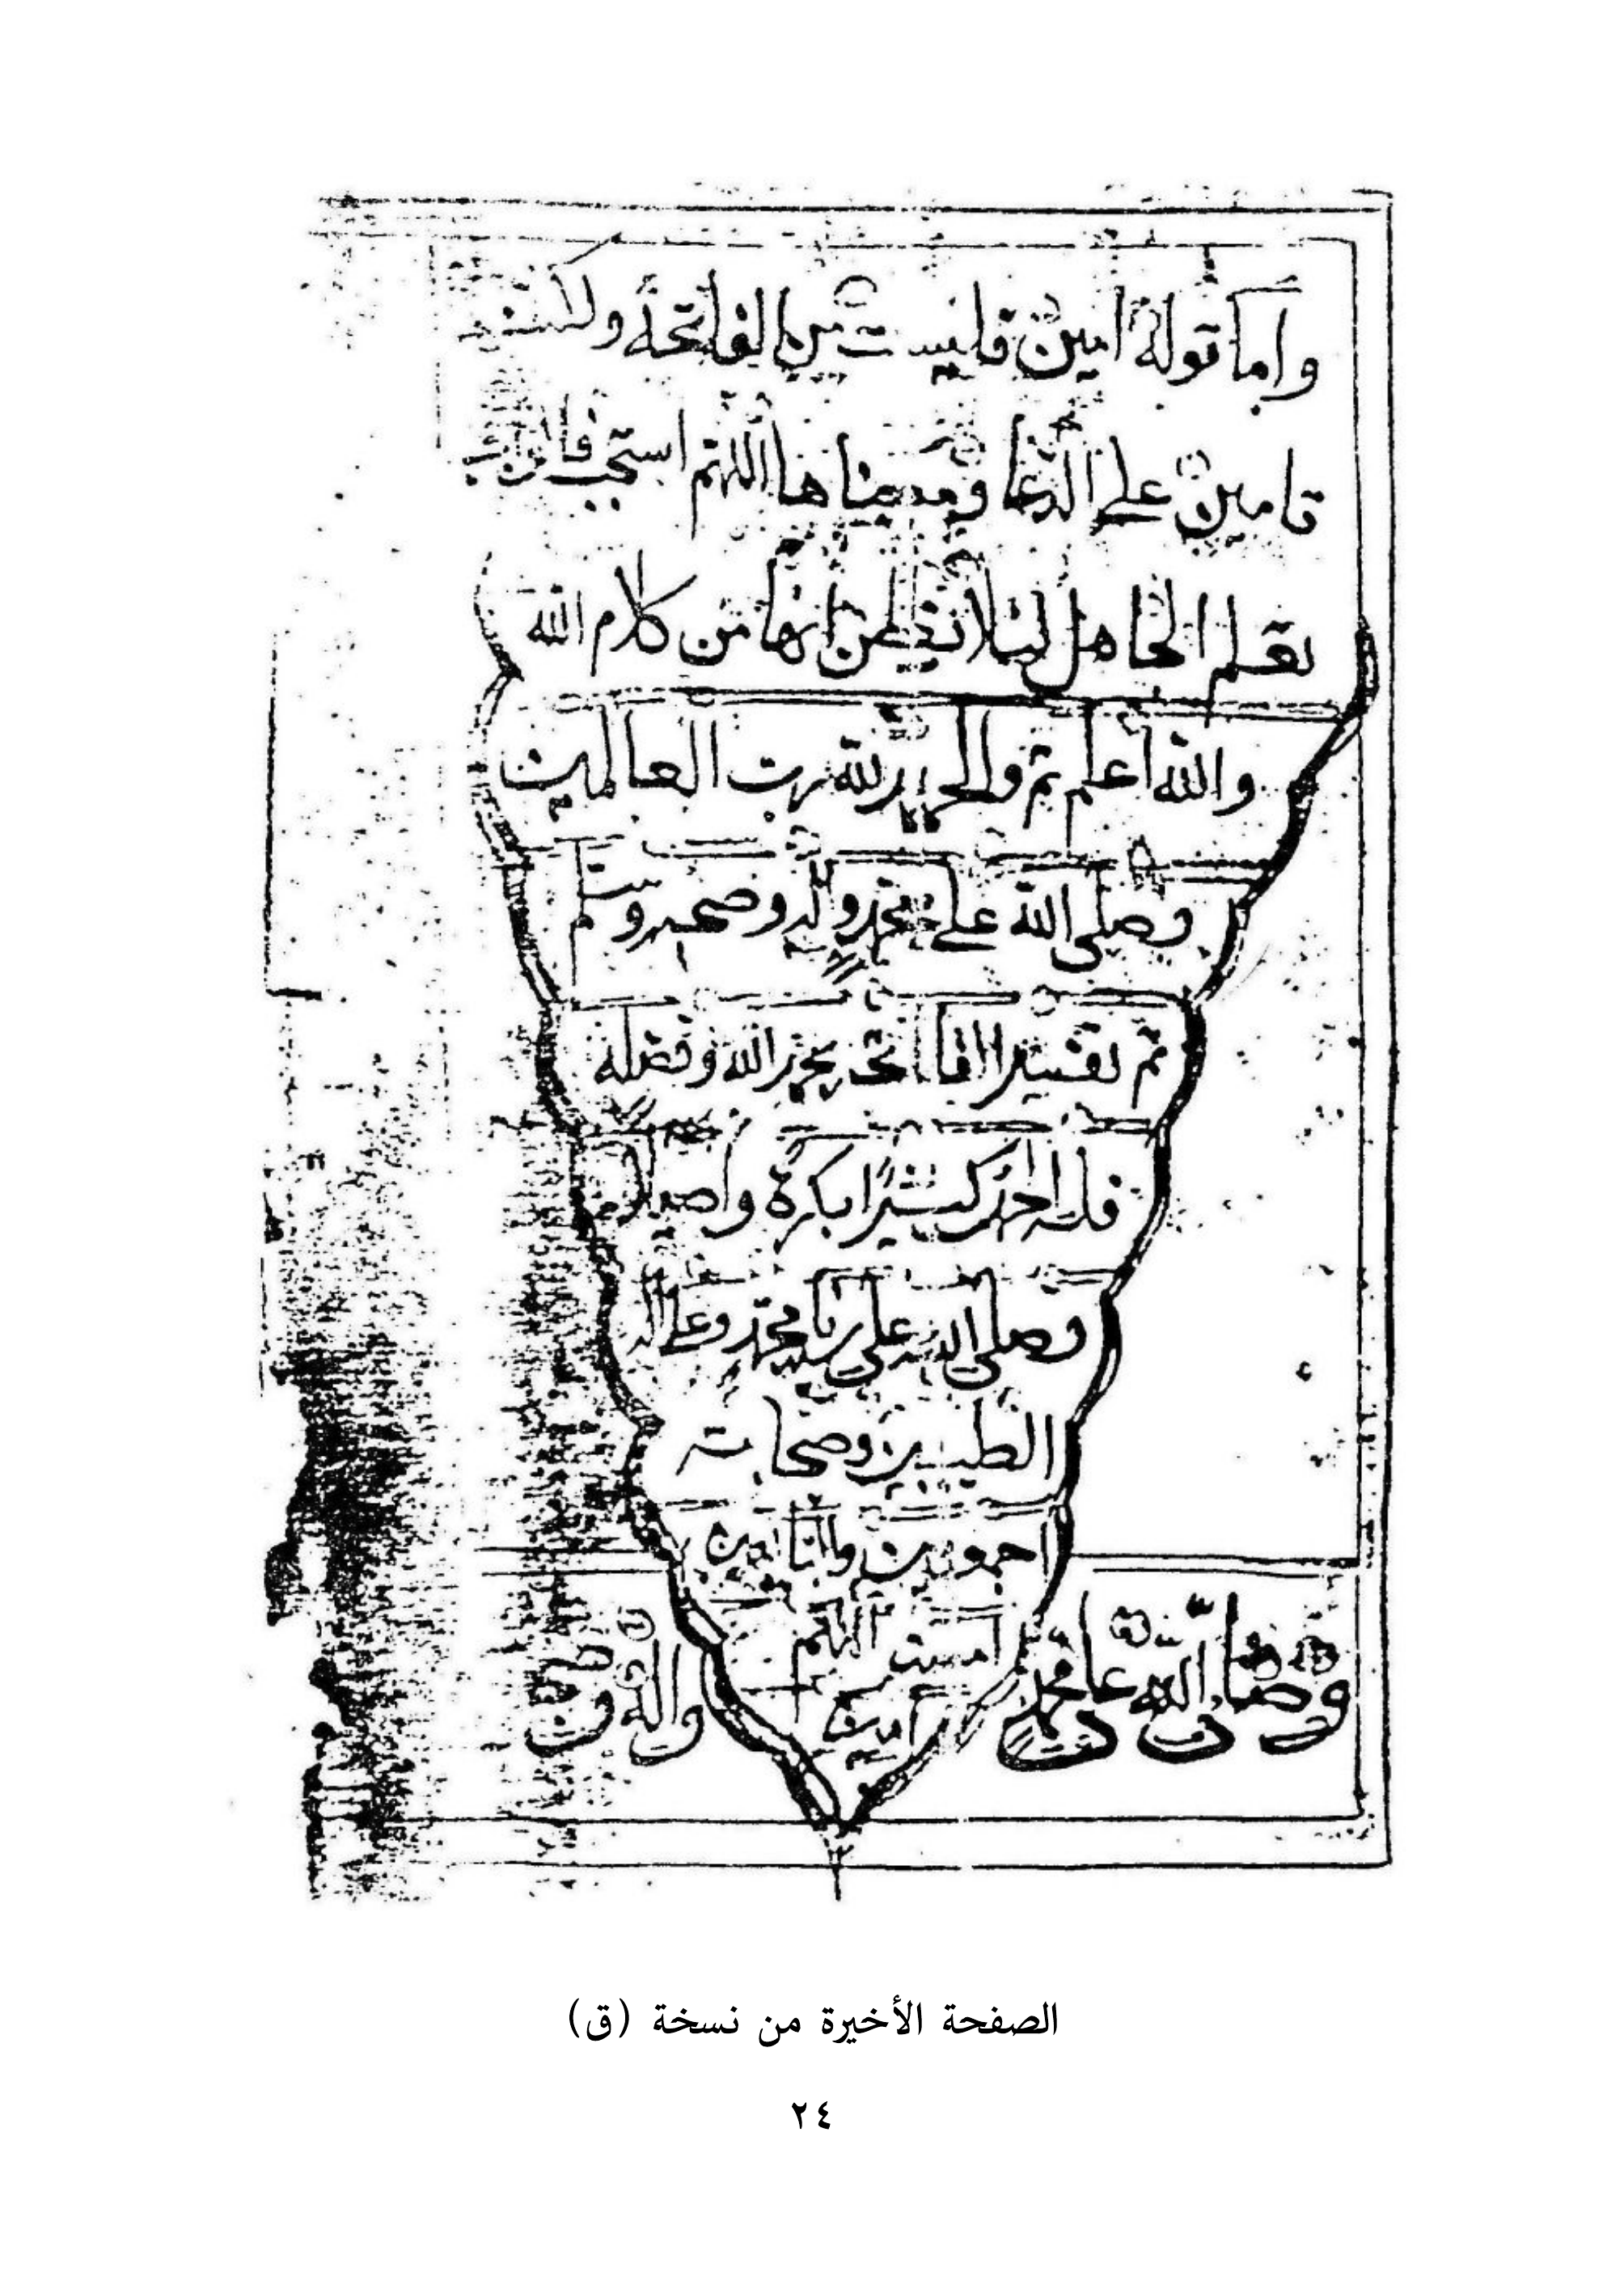 واما قوله امين فليست من الفاتحة ولكنه
تامين على الدعا ومعناها اللهم استجب
يعلم الجاهل ليلا يظن انها من كلام الله
والله أعلم تم والحمد لله رب العالمين
وصلى الله على محمد واله وصحبه وسلم
تم تفسير الفاتحة بحمد الله وفضله
فله الحمد كثيرًا بكرة واصيلا
وصلى الله على سيدنا محمد وعلى اله
الطيبين وصحابته
اجمعين والتابعين
امين اللهم
امين
وصلى الله على محمد
واله وصحبه
الصفحة الأخيرة من نسخة (ق)
٢٤